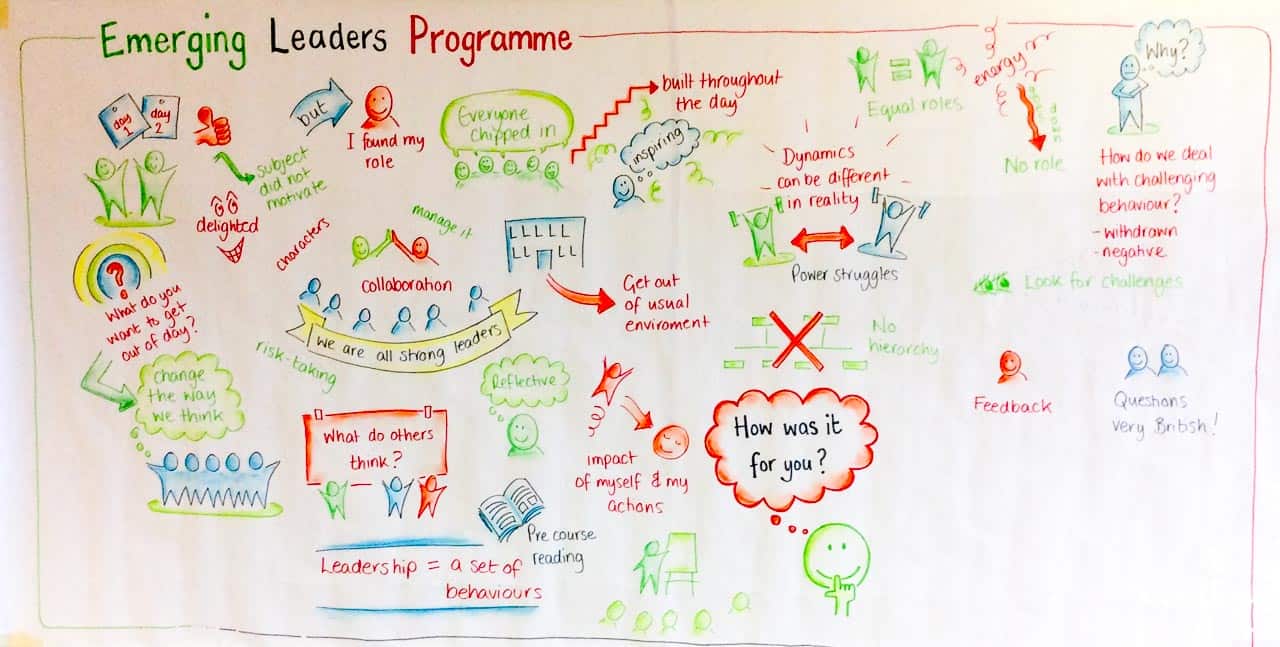 Emerging Leaders Programme
day
1
day
2
subject
did not
motivate
delighted
but
I found my
role
Everyone
chipped in
built throughout
the day
inspiring
Equal roles
energy
No role
Why?
How do we deal
with challenging
behaviour?
- withdrawn
- negative
Dynamics
can be different
in reality
Power struggles
Look for challenges
What do you
want to get
out of day?
characters
manage it
collaboration
we are all strong leaders
risk-taking
Get out
of usual
enviroment
No
hierarchy
change
the way
we think
Reflective
What do others
think?
impact
of myself & my
actions
How was it
for you?
Feedback
Questions
very British!
Pre course
reading
Leadership = a set of
behaviours